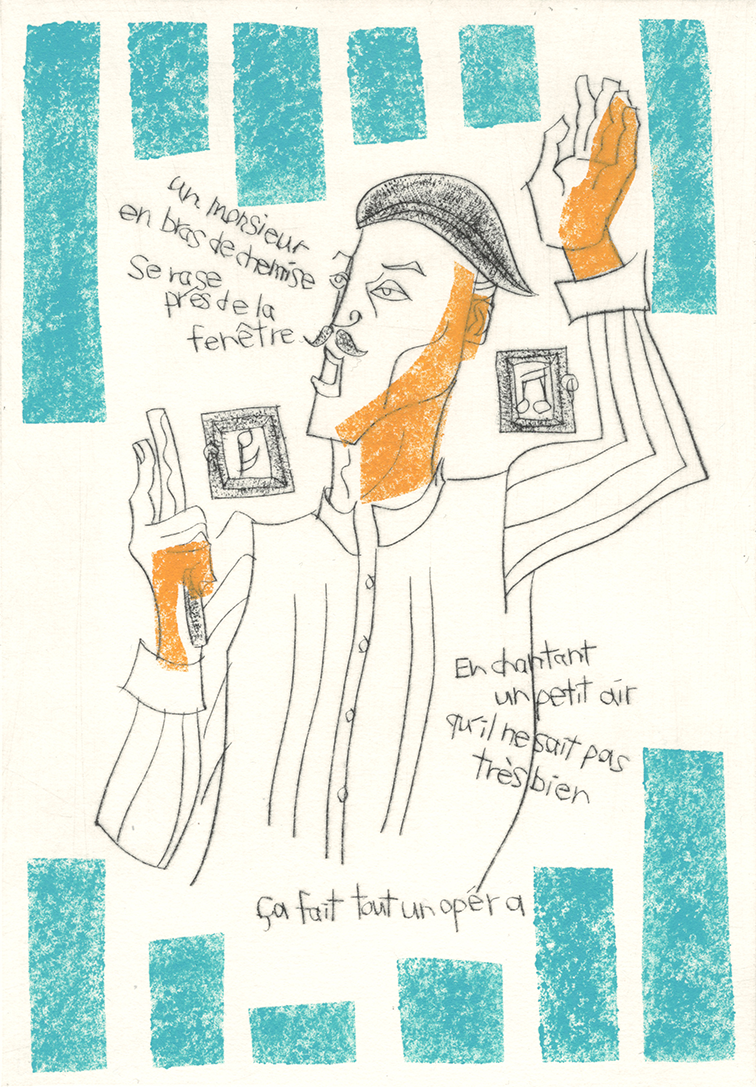 un monsieur
en bras de chemise
Se rase
près de la
fenêtre
En chantant
un petit air
qu'il ne sait pas
très bien
ça fait tout un opéra